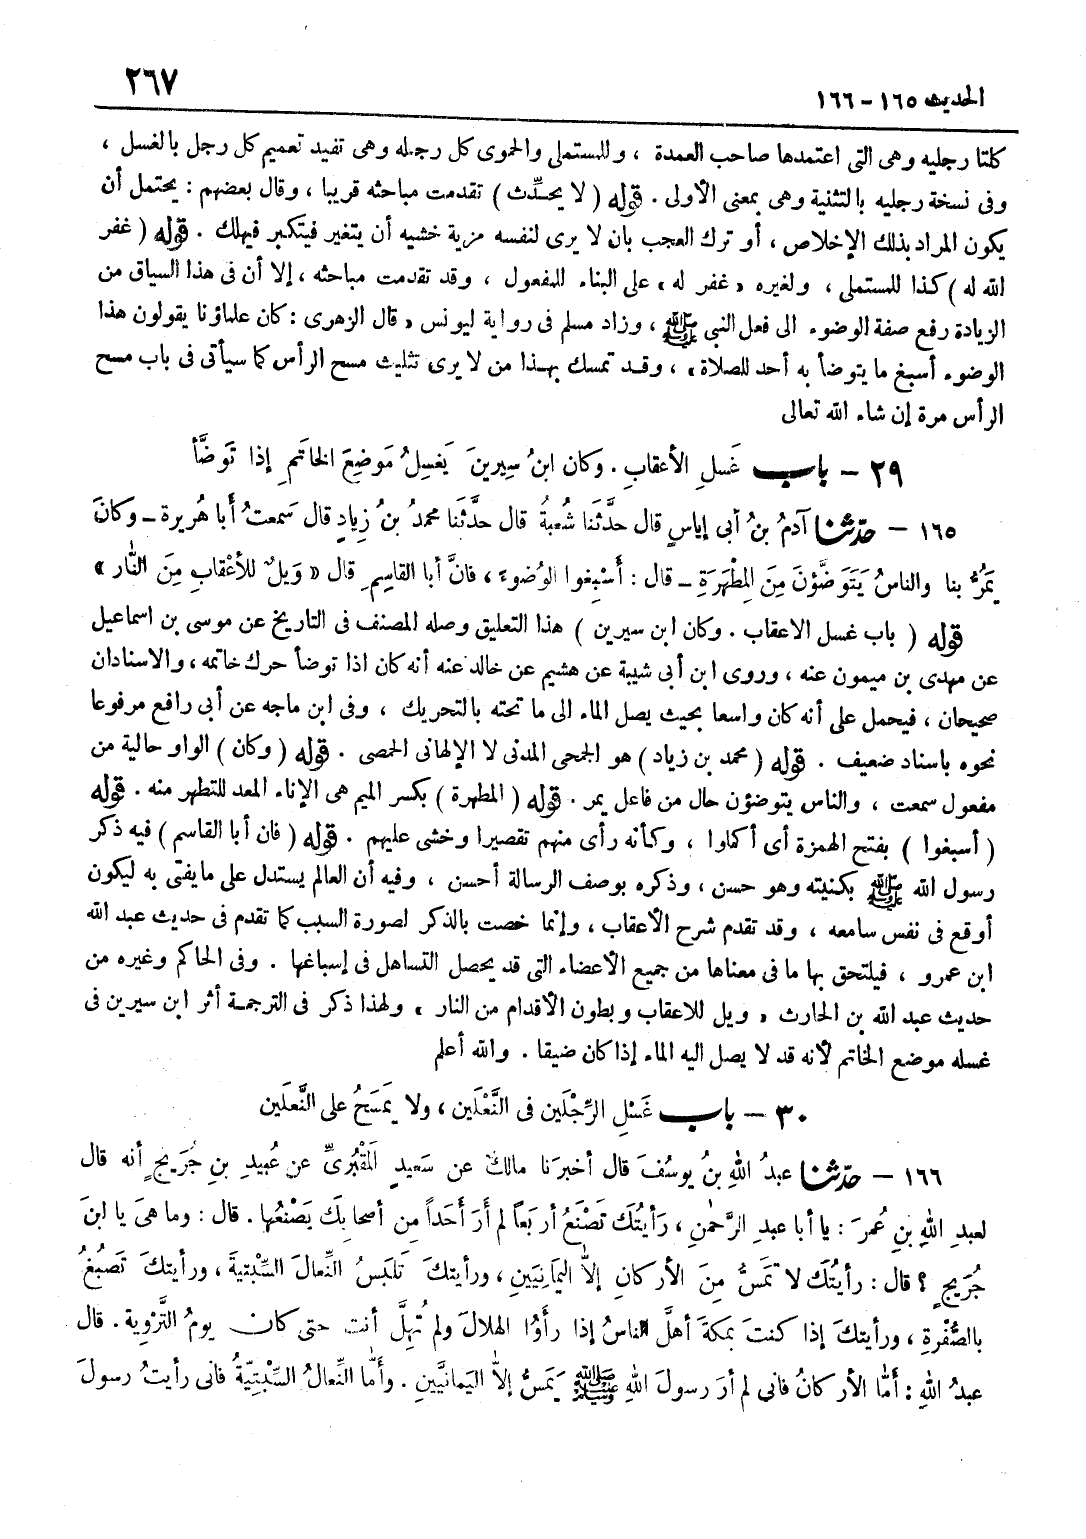 الحديث ١٦٥ - ١٦٦
٢٦٧
كلتا رجليه وهى التى اعتمدها صاحب العمدة ، وللمستملى والحموى كل رجله وهى تفيد تعميم كل رجل بالغسل ،
وفى نسخة رجليه بالتثنية وهى بمعنى الأولى . قوله ( لا يحدِّث ) تقدمت مباحثه قريبا ، وقال بعضهم : يحتمل أن
يكون المراد بذلك الإخلاص ، أو ترك العجب بان لا يرى لنفسه مزية خشيه أن يتغير فيتكبر فيهلك . قوله ( غفر
الله له ) كذا للمستملى ، ولغيره « غفر له » على البناء للمفعول ، وقد تقدمت مباحثه ، إلا أن فى هذا السياق من
الزيادة رفع صفة الوضوء الى فعل النبى ﷺ ، وزاد مسلم فى رواية ليونس « قال الزهرى : كان علماؤنا يقولون هذا
الوضوء أسبغ ما يتوضأ به أحد للصلاة » ، وقد تمسك بهذا من لا يرى تثليث مسح الرأس كما سيأتى فى باب مسح
الرأس مرة إن شاء الله تعالى
٢٩ - باب غَسلِ الأعقابِ . وكان ابنُ سِيرينَ يَغسِلُ مَوضِعَ الخاتَمِ إذا تَوضَّأ
١٦٥ - حدّثنا آدمُ بنُ أبى إياسٍ قال حدَّثَنا شُعبةُ قال حدَّثَنا محمدُ بنُ زِيادٍ قال سَمعتُ أبا هُريرة ـ وكانَ
يَمُرُّ بنا والناسُ يَتَوَضَّؤنَ مِنَ المِطْهَرَةِ ـ قال : أَسْبِغوا الوُضوءَ ، فانَّ أبا القاسِمِ قال « وَيلٌ للأعْقابِ مِنَ النَّار »
قوله ( باب غسل الاعقاب . وكان ابن سيرين ) هذا التعليق وصله المصنف فى التاريخ عن موسى بن اسماعيل
عن مهدى بن ميمون عنه ، وروى ابن أبى شيبة عن هشيم عن خالد عنه أنه كان اذا توضأ حرك خاتمه ، والاسنادان
صحيحان ، فيحمل على أنه كان واسعا بحيث يصل الماء الى ما تحته بالتحريك ، وفى ابن ماجه عن أبى رافع مرفوعا
نحوه باسناد ضعيف . قوله ( محمد بن زياد ) هو الجمحى المدنى لا الإلهانى الحمصى . قوله ( وكان ) الواو حالية من
مفعول سمعت ، والناس يتوضؤن حال من فاعل يمر . قوله ( المطهرة ) بكسر الميم هى الإناء المعد للتطهر منه . قوله
( أسبغوا ) بفتح الهمزة أى أكملوا ، وكأنه رأى منهم تقصيرا وخشى عليهم . قوله ( فان أبا القاسم ) فيه ذكر
رسول الله ﷺ بكنيته وهو حسن ، وذكره بوصف الرسالة أحسن ، وفيه أن العالم يستدل على ما يفتى به ليكون
أوقع فى نفس سامعه ، وقد تقدم شرح الأعقاب ، وإنما خصت بالذكر لصورة السبب كما تقدم فى حديث عبد الله
ابن عمرو ، فيلتحق بها ما فى معناها من جميع الأعضاء التى قد يحصل التساهل فى إسباغها . وفى الحاكم وغيره من
حديث عبد الله بن الحارث « ويل للاعقاب وبطون الأقدام من النار » ولهذا ذكر فى الترجمة أثر ابن سيرين فى
غسله موضع الخاتم لأنه قد لا يصل اليه الماء إذا كان ضيقا . والله أعلم
٣٠ - باب غَسْلِ الرِّجْلَين فى النَّعْلَين ، ولا يَمَسَحُ على النَّعلَين
١٦٦ - حدّثنا عبدُ اللهِ بنُ يوسُفَ قال أخبرَنا مالكٌ عن سَعيدٍ المَقْبُرىِّ عن عُبيدِ بنِ جُرَيجٍ أنه قال
لعبدِ اللهِ بنِ عُمرَ : يا أبا عبدِ الرَّحمٰنِ ، رَأيتُكَ تَصْنَعُ أربَعاً لم أَرَ أَحَداً مِن أصحابِكَ يَصْنَعُها . قال : وما هىَ يا ابنَ
جُرَيجٍ ؟ قال : رأيتُكَ لا تمَسُّ مِنَ الأركانِ إلاَّ اليَمانِيَينِ ، ورأيتكَ تَلبَسُ النِّعالَ السِّبْتِيةَ ، ورأيتكَ تَصبُغُ
بالصُّفْرةِ ، ورأيتكَ إذا كنتَ بمكةَ أهلَّ الناسُ إذا رأَوُا الهلالَ ولم تُهِلَّ أنت حتى كان يومُ التَّرْوِية . قال
عبدُ اللهِ : أمَّا الأركانُ فانى لم أرَ رسولَ اللهِ ﷺ يَمَسُّ إلاَّ اليَمانيَّينِ . وأمَّا النِّعالُ السِّبْتيّةُ فانى رأيتُ رسولَ